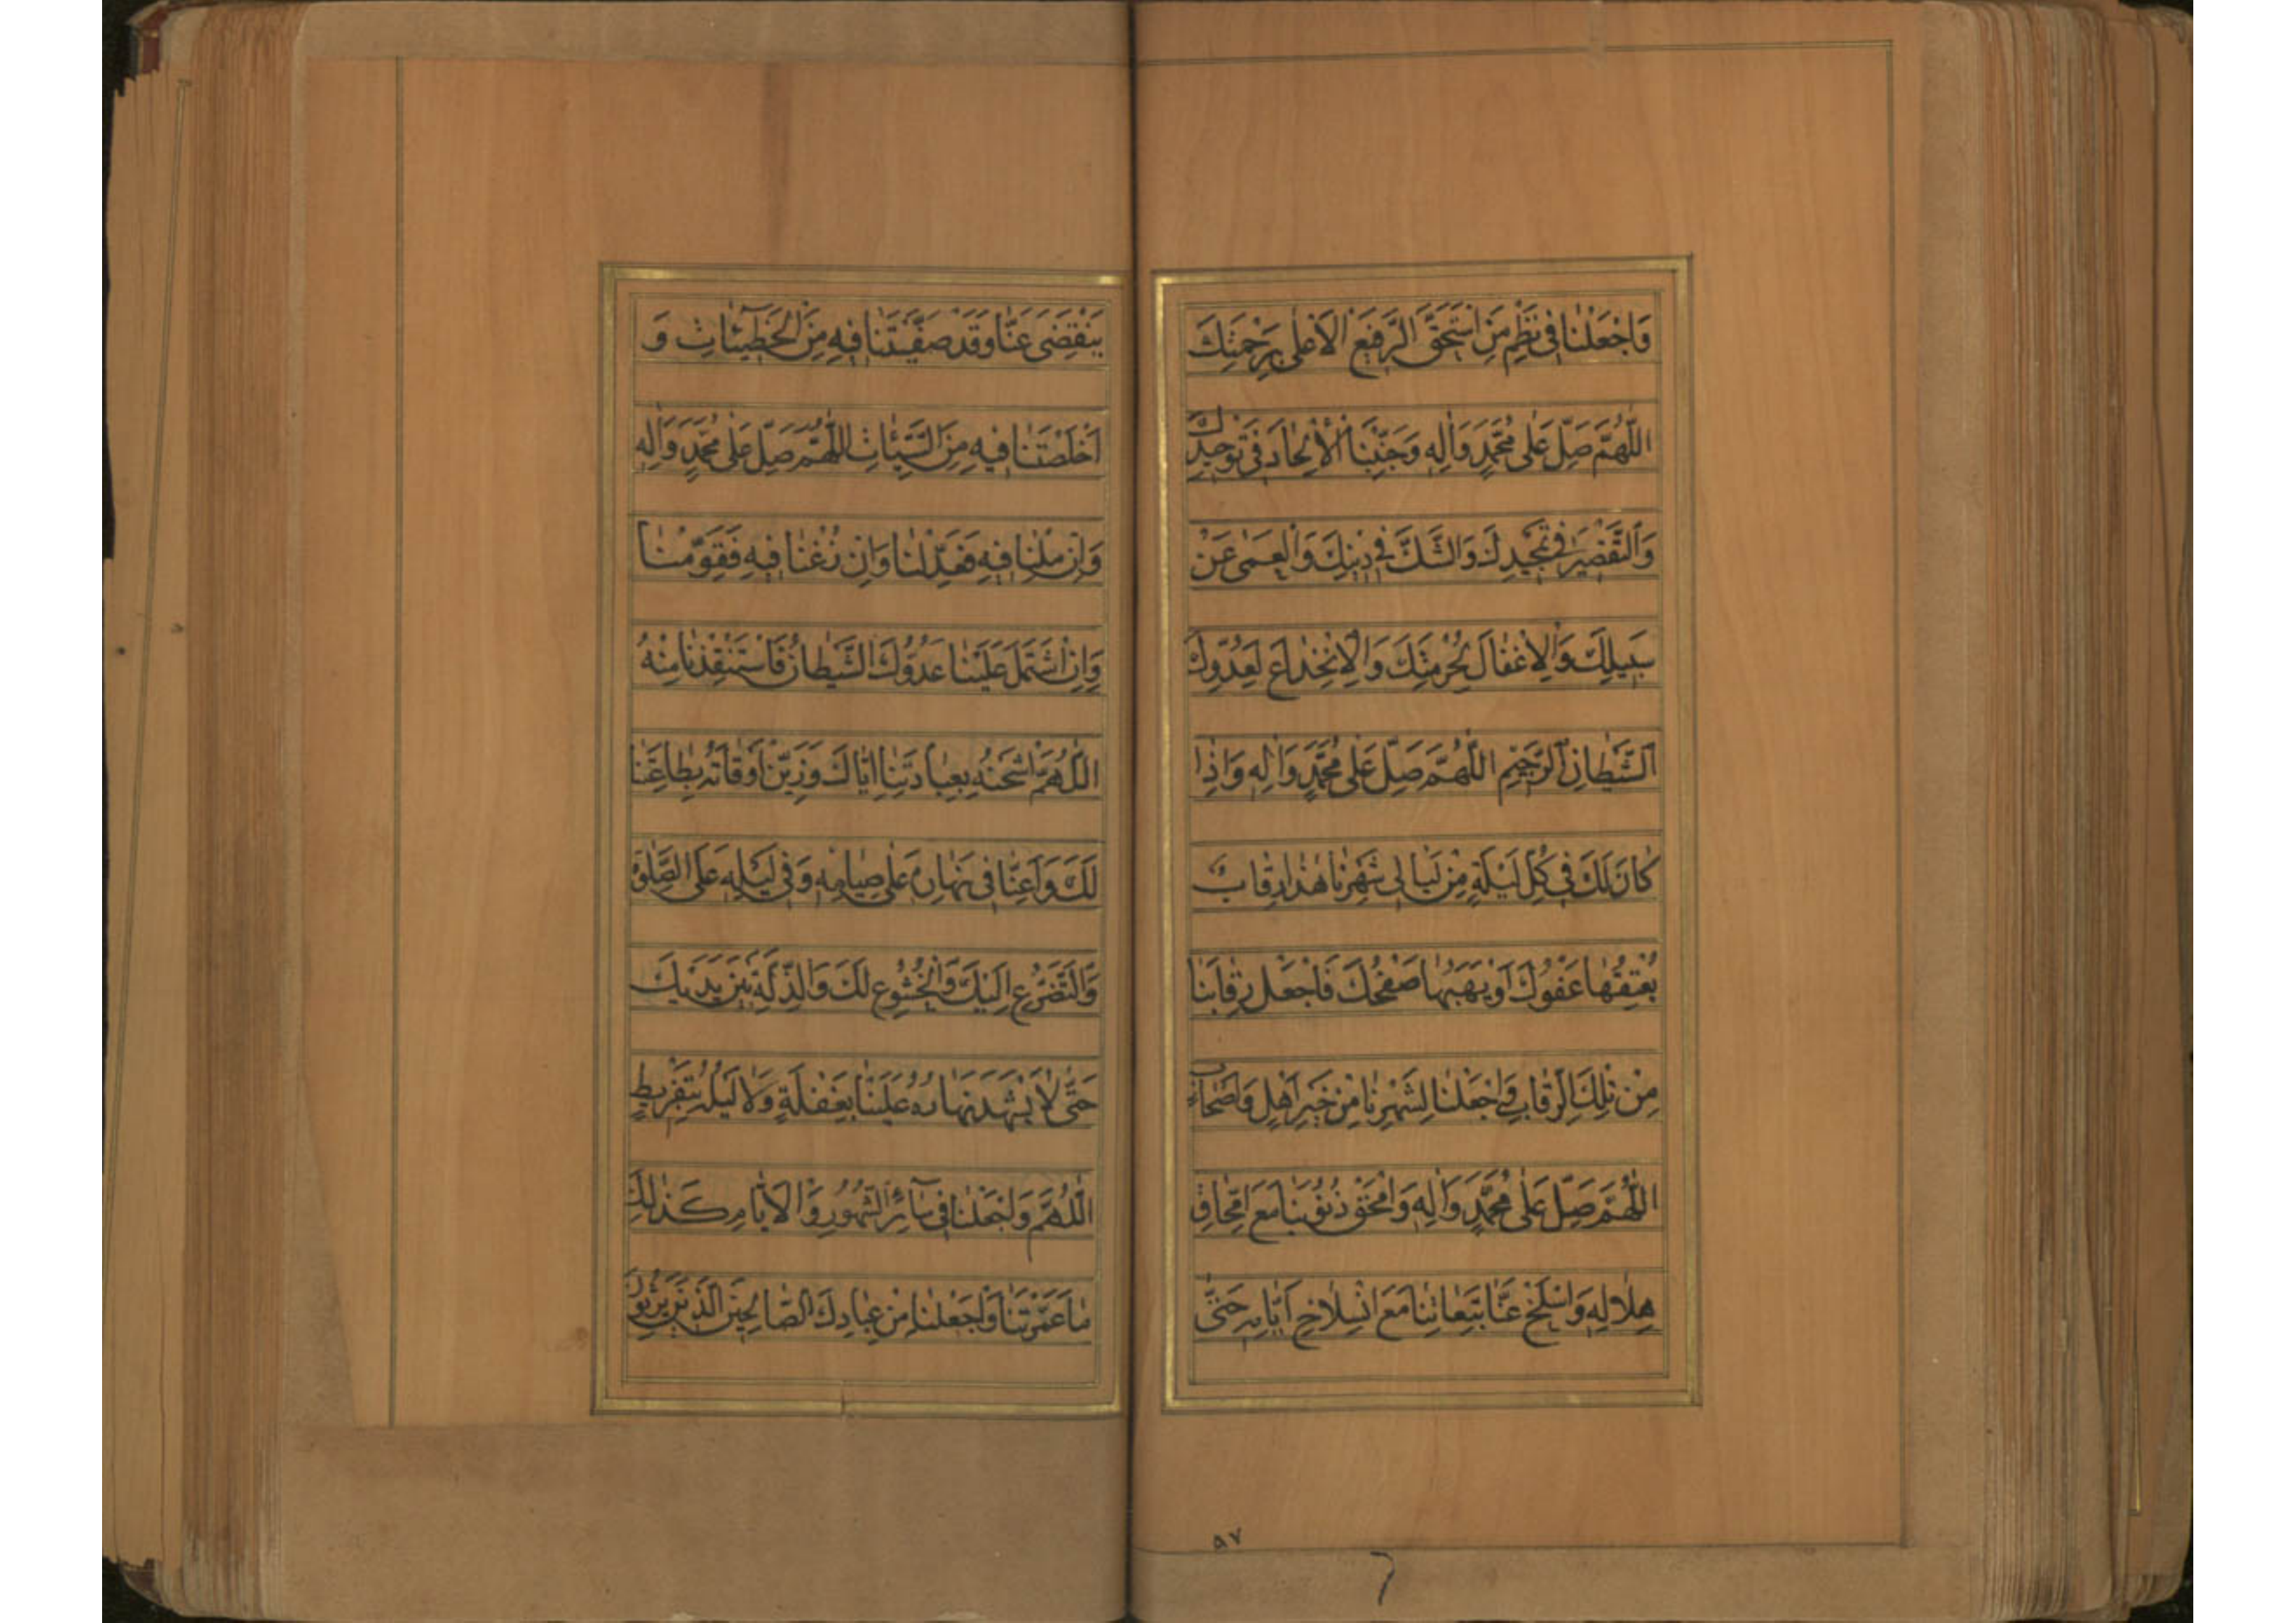 وَاجْعَلْنَا فِی نَظْمِ مَنِ اسْتَحَقَّ الرَّفِیعَ الْاَعْلٰی بِرَحْمَتِكَ
اَللّٰهُمَّ صَلِّ عَلٰی مُحَمَّدٍ وَاٰلِهِ وَجَنِّبْنَا الْاِلْحَادَ فِی تَوْحِیدِكَ
وَالتَّقْصِیرَ فِی تَمْجِیدِكَ وَالشَّكَّ فِی دِینِكَ وَالْعَمٰی عَنْ
سَبِیلِكَ وَالْاِغْفَالَ لِحُرْمَتِكَ وَالْاِنْخِدَاعَ لِعَدُوِّكَ
الشَّیْطَانِ الرَّجِیمِ اَللّٰهُمَّ صَلِّ عَلٰی مُحَمَّدٍ وَاٰلِهِ وَاِذَا
كَانَ لَكَ فِی كُلِّ لَیْلَةٍ مِنْ لَیَالِی شَهْرِنَا هٰذَا رِقَابٌ
یُعْتِقُهَا عَفْوُكَ اَوْ یَهَبُهَا صَفْحُكَ فَاجْعَلْ رِقَابَنَا
مِنْ تِلْكَ الرِّقَابِ وَاجْعَلْنَا لِشَهْرِنَا مِنْ خَیْرِ اَهْلٍ وَاَصْحَابٍ
اَللّٰهُمَّ صَلِّ عَلٰی مُحَمَّدٍ وَاٰلِهِ وَامْحَقْ ذُنُوبَنَا مَعَ امِّحَاقِ
هِلَالِهِ وَاسْلَخْ عَنَّا تَبِعَاتِنَا مَعَ انْسِلَاخِ اَیَّامِهِ حَتّٰی
۵۷
یَنْقَضِیَ عَنَّا وَقَدْ صَفَّیْتَنَا فِیهِ مِنَ الْخَطِیئَاتِ وَ
اَخْلَصْتَنَا فِیهِ مِنَ السَّیِّئَاتِ اَللّٰهُمَّ صَلِّ عَلٰی مُحَمَّدٍ وَاٰلِهِ
وَاِنْ مِلْنَا فِیهِ فَعَدِّلْنَا وَاِنْ زُغْنَا فِیهِ فَقَوِّمْنَا
وَاِنِ اشْتَمَلَ عَلَیْنَا عَدُوُّكَ الشَّیْطَانُ فَاسْتَنْقِذْنَا مِنْهُ
اَللّٰهُمَّ اشْحَنْهُ بِعِبَادَتِنَا اِیَّاكَ وَزَیِّنْ اَوْقَاتَهُ بِطَاعَتِنَا
لَكَ وَاَعِنَّا فِی نَهَارِهِ عَلٰی صِیَامِهِ وَفِی لَیْلِهِ عَلَی الصَّلٰوةِ
وَالتَّضَرُّعِ اِلَیْكَ وَالْخُشُوعِ لَكَ وَالذِّلَّةِ بَیْنَ یَدَیْكَ
حَتّٰی لَا یَشْهَدَ نَهَارُهُ عَلَیْنَا بِغَفْلَةٍ وَلَا لَیْلُهُ بِتَفْرِیطٍ
اَللّٰهُمَّ وَاجْعَلْنَا فِی سَائِرِ الشُّهُورِ وَالْاَیَّامِ كَذٰلِكَ
مَا عَمَّرْتَنَا وَاجْعَلْنَا مِنْ عِبَادِكَ الصَّالِحِینَ الَّذِینَ یَرِثُونَ